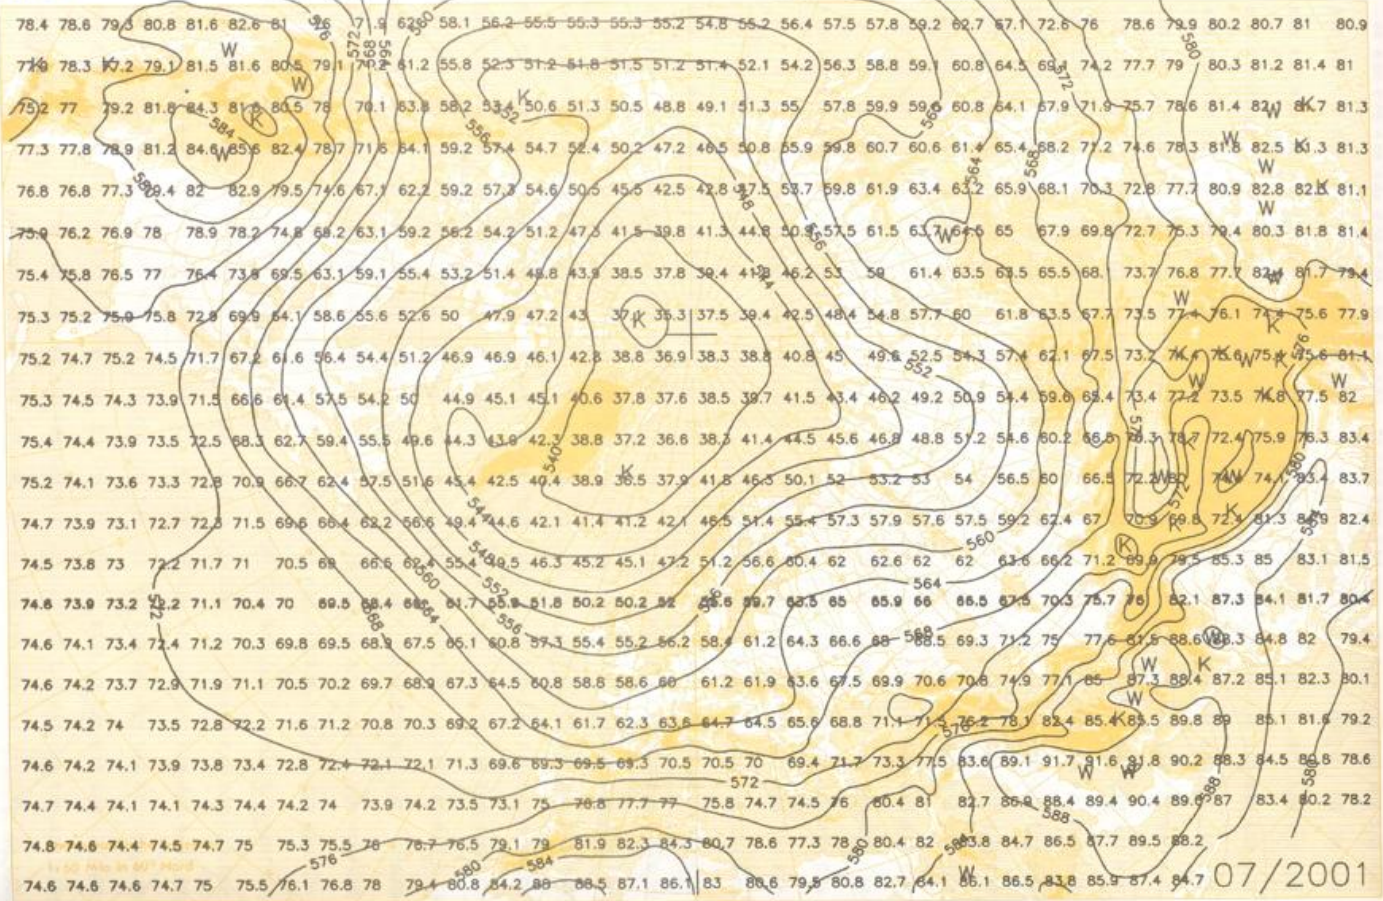 78.4 78.6 79.3 80.8 81.6 82.6 81 76 71.9 58.1 56.2 55.5 55.3 55.3 55.2 54.8 55.2 56.4 57.5 57.8 59.2 62.7 67.1 72.6 76 78.6 79.9 80.2 80.7 81 80.9
576 572 568 564 560 580
W
78.3 77.2 79.1 81.5 81.6 80.5 79.1 61.2 55.8 52.3 51.2 51.8 51.5 51.2 51.4 52.1 54.2 56.3 58.8 59.1 60.8 64.5 69.1 74.2 77.7 79 80.3 81.2 81.4 81
K K W K 572
75.2 77 79.2 81.8 84.3 81.6 80.5 78 70.1 63.8 58.2 53.4 50.6 51.3 50.5 48.8 49.1 51.3 55 57.8 59.9 59.6 60.8 64.1 67.9 71.9 75.7 78.6 81.4 82.1 81.7 81.3
552 W K
584 K 556 560 W
77.3 77.8 78.9 81.2 84.6 85.6 82.4 78.7 71.6 64.1 59.2 57.4 54.7 52.4 50.2 47.2 46.5 50.8 55.9 59.8 60.7 60.6 61.4 65.4 68.2 71.2 74.6 78.3 81.8 82.5 81.3 81.3
W K W 564 568
76.8 76.8 77.3 79.4 82 82.9 79.5 74.6 67.1 62.2 59.2 57.3 54.6 50.5 45.5 42.5 42.8 47.5 53.7 59.8 61.9 63.4 63.2 65.9 68.1 70.3 72.8 77.7 80.9 82.8 82.5 81.1
580 548 K W
75.9 76.2 76.9 78 78.9 78.2 74.8 69.2 63.1 59.2 56.2 54.2 51.2 47.3 41.5 39.8 41.3 44.8 50.9 57.5 61.5 63.7 64.5 65 67.9 69.8 72.7 75.3 79.4 80.3 81.8 81.4
556 W
75.4 75.8 76.5 77 76.4 73.9 69.5 63.1 59.1 55.4 53.2 51.4 48.8 43.9 38.5 37.8 39.4 41.8 46.2 53 59 61.4 63.5 63.5 65.5 68.1 73.7 76.8 77.7 82.4 81.7 79.4
544 W W
75.3 75.2 75.9 75.8 72.9 69.9 64.1 58.6 55.6 52.6 50 47.9 47.2 43 35.3 37.5 39.4 42.5 48.4 54.8 57.7 60 61.8 63.5 67.7 73.5 77.4 76.1 74.4 75.6 77.9
K K 576
75.2 74.7 75.2 74.5 71.7 67.2 61.6 56.4 54.4 51.2 46.9 46.9 46.1 42.8 38.8 36.9 38.3 38.8 40.8 45 49.6 52.5 54.3 57.4 62.1 67.5 73.2 74.4 75.4 75.6 81.1
552 K K W K W W
75.3 74.5 74.3 73.9 71.5 66.6 61.4 57.5 54.2 50 44.9 45.1 45.1 40.6 37.8 37.6 38.5 39.7 41.5 43.4 46.2 49.2 50.9 54.4 59.6 65.4 73.4 77.2 73.5 74.8 77.5 82
K
75.4 74.4 73.9 73.5 72.5 68.3 62.7 59.4 55.5 49.6 44.3 43.9 42.3 38.8 37.2 36.6 38.3 41.4 44.5 45.6 46.8 48.8 51.2 54.6 60.2 66.8 78.7 72.4 75.9 76.3 83.4
540 K 580
75.2 74.1 73.6 73.3 72.8 70.9 66.7 62.4 57.5 51.6 45.4 42.5 40.4 38.9 36.5 37.9 41.8 46.3 50.1 52 53.2 53 54 56.5 60 66.5 83.4 83.7
W W 544 572 K K
74.7 73.9 73.1 72.7 72.3 71.5 69.6 66.4 62.2 56.6 49.4 44.6 42.1 41.4 41.2 42.1 46.5 51.4 55.4 57.3 57.9 57.6 57.5 59.2 62.4 67 70.9 69.8 72.4 81.3 82.4
548 560 K 584
74.5 73.8 73 72.2 71.7 71 70.5 69 66.5 62.4 55.4 49.5 46.3 45.2 45.1 47.2 51.2 56.6 60.4 62 62.6 62 62 63.6 66.2 71.2 69.9 79.5 85.3 85 83.1 81.5
560 552 564
74.6 73.9 73.2 72.2 71.1 70.4 70 69.5 68.4 61.7 51.8 50.2 50.2 52 59.7 63.5 65 65.9 66 66.5 67.5 70.3 75.7 76 82.1 87.3 84.1 81.7 80.4
572 568 564 556 556 568
74.6 74.1 73.4 72.4 71.2 70.3 69.8 69.5 68.9 67.5 65.1 60.8 57.3 55.4 55.2 56.2 58.4 61.2 64.3 66.6 68 68.5 69.3 71.2 75 77.6 81.5 88.6 84.8 82 79.4
W W K
74.6 74.2 73.7 72.9 71.9 71.1 70.5 70.2 69.7 68.9 67.3 64.5 60.8 58.6 58.6 60 61.2 61.9 63.6 67.5 69.9 70.6 70.8 74.9 77.1 85 87.3 88.4 87.2 85.1 82.3 80.1
W
74.5 74.2 74 73.5 72.8 72.2 71.6 71.2 70.8 70.3 69.2 67.2 64.1 61.7 62.3 63.6 64.7 64.5 65.6 68.8 71.1 71.5 76.2 78.1 82.4 85.4 85.5 89.8 89 85.1 81.6 79.2
576 K
74.6 74.2 74.1 73.9 73.8 73.4 72.8 72.4 72.1 72.1 71.3 69.6 69.3 69.5 69.3 70.5 70.5 70 69.4 71.7 73.3 77.5 83.6 89.1 91.7 91.6 91.8 90.2 88.3 84.5 80.8 78.6
572 W W 588 580
74.7 74.4 74.1 74.1 74.3 74.4 74.2 74 73.9 74.2 73.5 73.1 75 76.8 77.7 77 75.8 74.7 74.5 76 80.4 81 82.7 86.9 88.4 89.4 90.4 89.6 87 83.4 80.2 78.2
588
74.8 74.6 74.4 74.5 74.7 75 75.3 75.5 76 76.7 76.5 79.1 79 81.9 82.3 84.3 80.7 78.6 77.3 78 80.4 82 83.8 84.7 86.5 87.7 89.5 88.2
576 580 584 580 584 W
74.6 74.6 74.6 74.7 75 75.5 76.1 76.8 78 79.4 80.8 84.2 88 88.5 87.1 86.1 83 80.6 79.5 80.8 82.7 84.1 86.1 86.5 83.8 85.9 87.4 84.7
07/2001